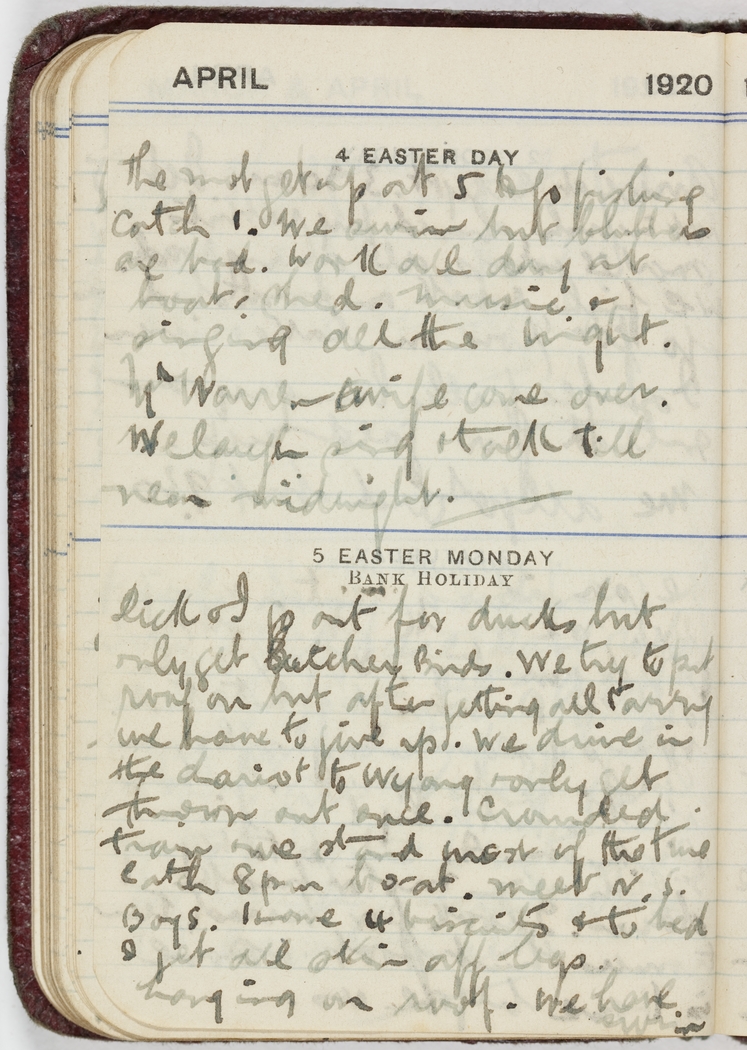 APRIL 1920
4 EASTER DAY
The get up at 5 & go fishing
Catch 1. We swim but
are bad. Work all day at
boat shed. Music &
singing all the night.
Mr Warren & wife come over.
We laugh sing & talk till
near midnight.
5 EASTER MONDAY
BANK HOLIDAY
Dick & I go out for ducks but
only get Butcher Birds. We try to put
roof on but after getting all tarry
we have to give up. We drive in
the chariot to Wyong & only get
thrown out once. Crowded
train & we stand most of the time
Catch 8 pm boat. Meet N.S.
Boys. Home & biscuits & to bed
I get all skin off legs.
hanging on roof. We have
swim